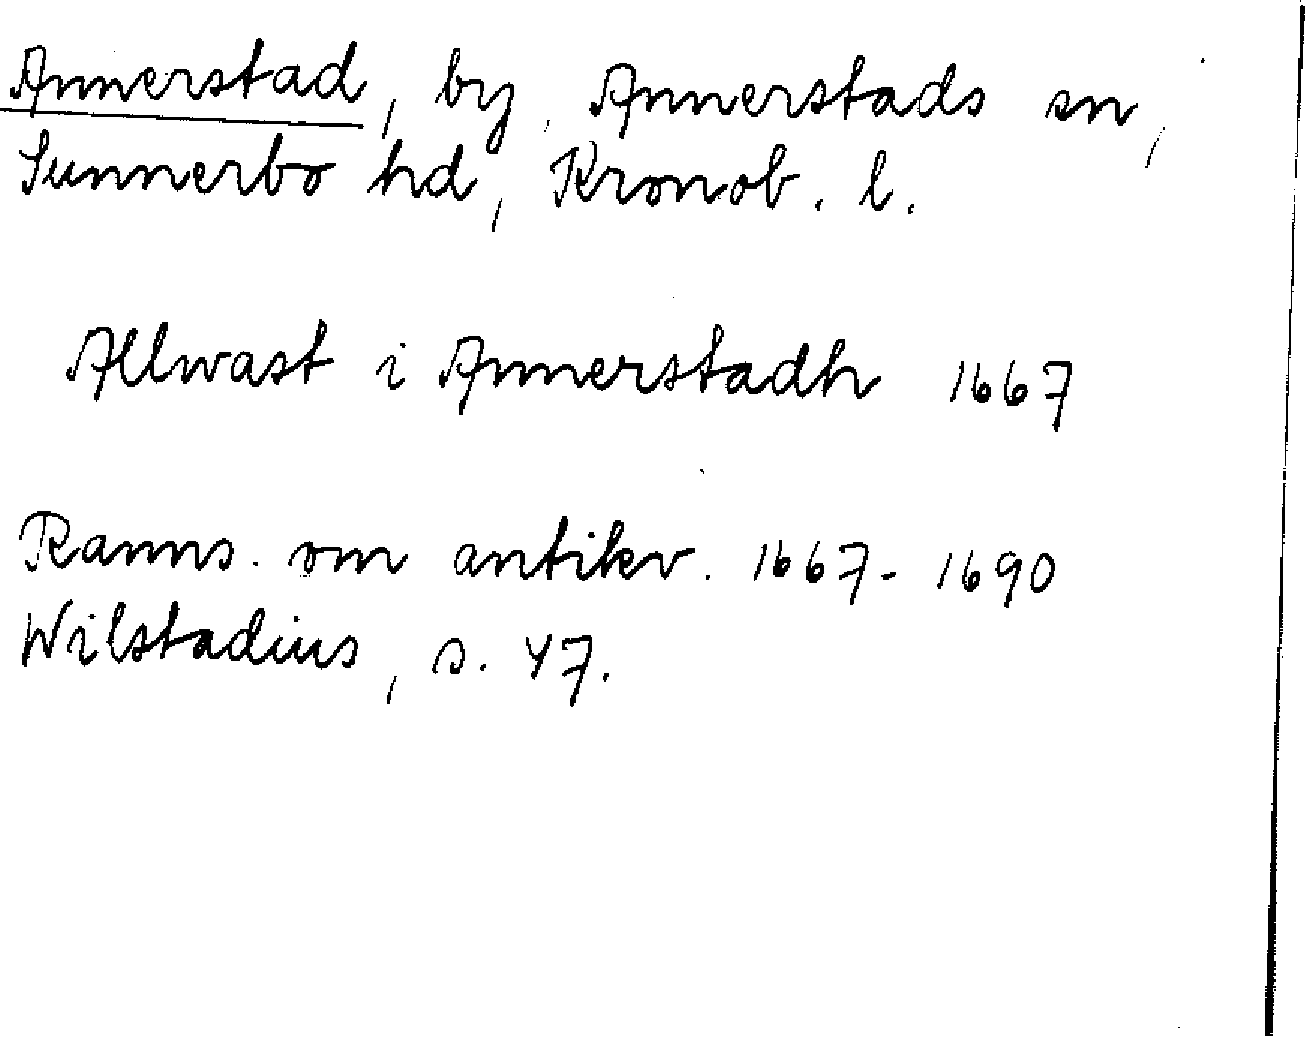 Annerstad, by, Annerstads sn,
Sunnerbo hd, Kronob. l.
Allwast i Annerstadh 1667
Ranns. om antikv. 1667-1690
Wilstadius, s. 47.